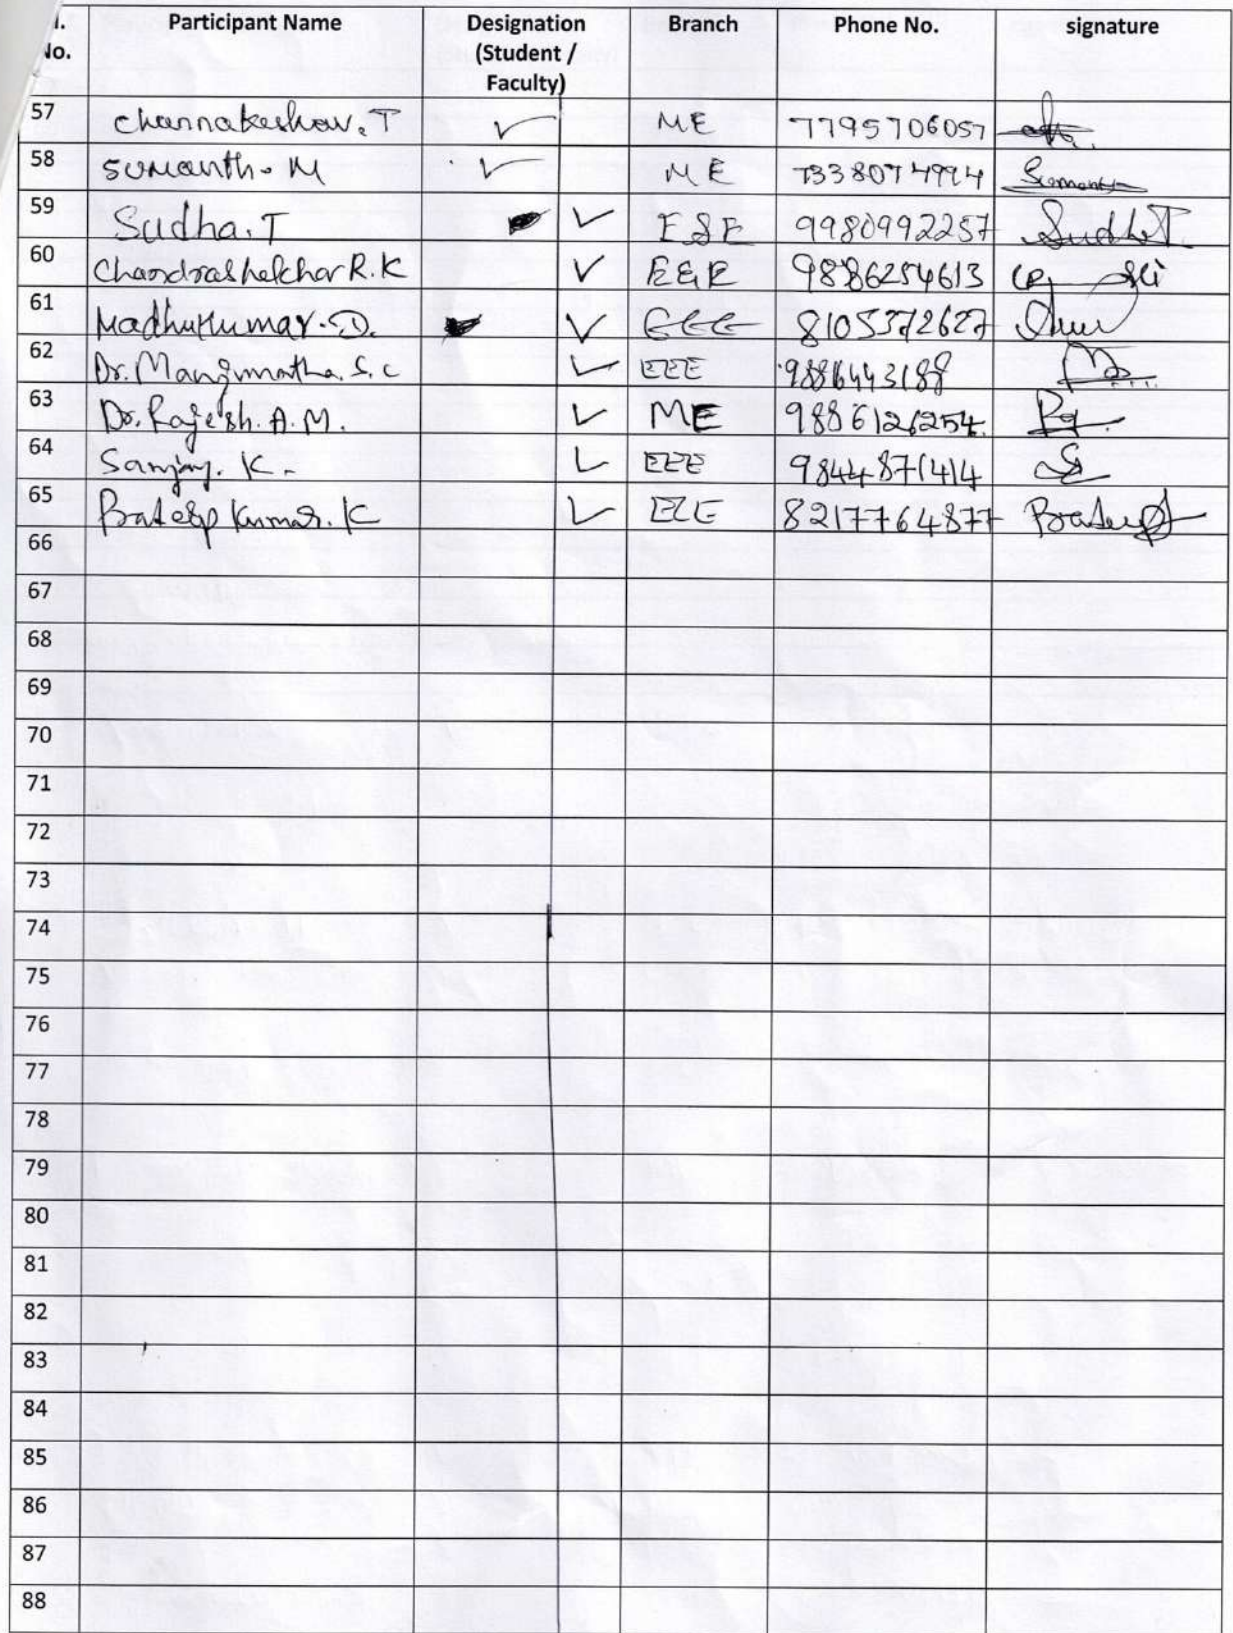 l. Participant Name Designation Branch Phone No. signature
No. (Student /
Faculty)
57 Channakeshav. T ✓ ME 7795706057
58 Sumanth. M ✓ ME 7338074994 Sumanth
59 Sudha. T ✓ E&E 9980992257 Sudha T.
60 Chandrashekhar R. K ✓ E&E 9886254613
61 Madhukumar. D. ✓ EEE 8105372627
62 Dr. Manjunatha. S. C ✓ EEE 9886443188
63 Dr. Rajesh. A. M. ✓ ME 9886126254
64 Sanjay. K. ✓ EEE 9844871414
65 Pradeep Kumar. K ✓ EEE 8217764877
66
67
68
69
70
71
72
73
74
75
76
77
78
79
80
81
82
83
84
85
86
87
88